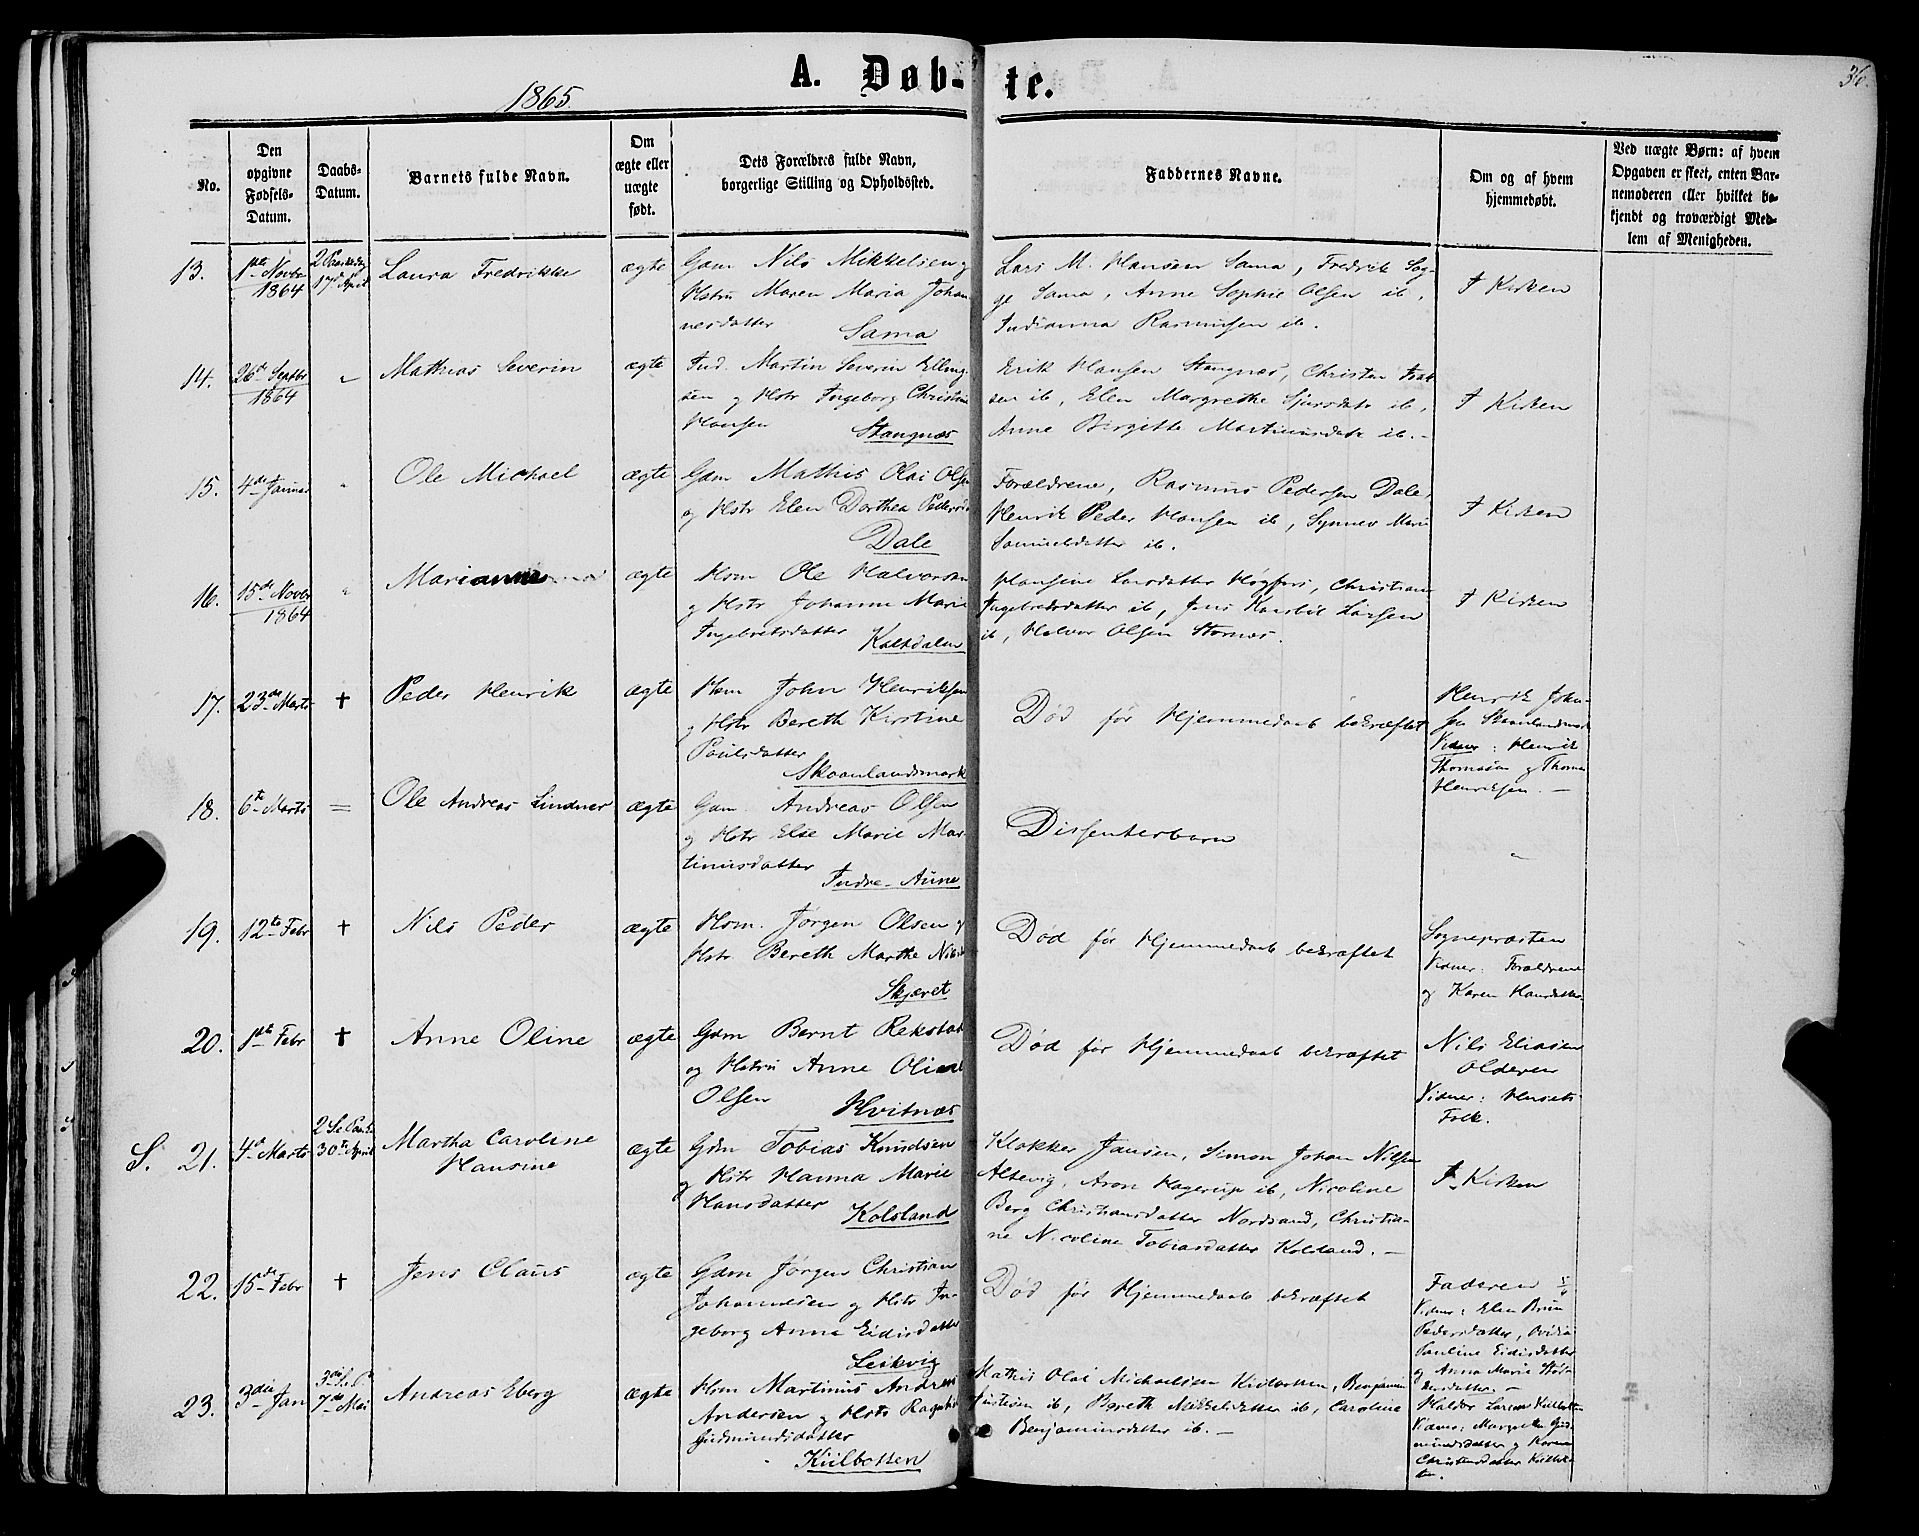 36.
1865.
A. Døb-
te.
No.
Den opgivne Fødsels-Datum.
Daabs-Datum.
Barnets fulde Navn.
Om ægte eller uægte født.
Dets Forældres fulde Navn, borgerlige Stilling og Opholdssted.
Faddernes Navne.
Om og af hvem hjemmedøbt.
Ved uægte Børn: af hvem Opgaven er skeet, enten Barnemoderen eller hvilket bekjendt og troværdigt Medlem af Menigheden.
13.
1ste Novbr
1864
17de April
Laura Fredrikke
ægte
Gdm Nils Mikkelsen og
Hstru Maren Maria Johan
nesdatter
Sama
Lars M. Hansen Sama, Fredrik Sog-
ge Sama, Anne Sophie Olsen ib,
Indianna Rasmusen ib.
I Kirken
14.
26de Septbr
1864
"
Mathias Severin
ægte
Ind. Martin Severin Elling
sen og Hstr Ingeborg Christine
Hansen
Stangnæs
Erik Hansen Stangnæs, Christen
sen ib, Elen Margrethe Sjursdatr ib,
Anne Birgitte Martinusdatr ib. -
I Kirken
15.
4de Januar
"
Ole Michael
ægte
Gdm Mathis Olai Olsen
og Hstr Elen Dorthea Pedersd
Dale
Forældrene, Rasmus Pedersen Dale,
Henrik Peder Hansen ib, Synnev Marie
Samueldatter ib.
I Kirken
16.
15de Novbr
1864
"
Marianna
ægte
Hsm Ole Halvorsen
og Hstr Johanne Marie
Ingebretsdatter
Kaltdalen
Hansine Larsdatter Høgfors, Christiane
Ingebretsdatter ib, Jens Larsen
ib, Halvor Olsen Stornæs.
I Kirken
17.
23de Marts
†
Peder Henrik
ægte
Hsm John Henriksen
og Hstr Bereth Kirstine
Paulsdatter
Skaanlandsmark
Død før Hjemmedaab bekræftet
Henrik John-
sen Skaanlandsmark
Vidner: Henrik
Thomasen og Thomas
Henriksen. -
18.
6te Marts
=
Ole Andreas Lindner
ægte
Gdm. Andreas Olsen
og Hstr Else Marie Mar-
tinusdatter
Indre-Aune
Dissenterbarn
"
19.
12te Febr
†
Nils Peder
ægte
Hsm. Jørgen Olsen og
Hstr Bereth Marthe Nilsd
Skjæret
Død før Hjemmedaab bekræftet
Sognepræsten
Vidner: Forældrene
og Karen Hansdatter
20.
1ste Febr
†
Anne Oline
ægte
Gdm Bernt Rekstad
og Hstru Anne Oline
Olsen
Hvitnæs
Død før Hjemmedaab bekræftet
Nils Eliasen
Olderen
Vidner: Husets
Folk.
S. 21.
4de Marts
30te April
Martha Caroline
Hansine
ægte
Gdm Tobias Knudsen
og Hstr Hanna Marie
Hansdatter
Kolsland
Klokker Jansen, Simon Johan Nilsen
Altevig, Aron Hagerup ib, Nicoline
Berg Christiansdatter Nordsand, Christia-
ne Nicoline Tobiasdatter Kolsland. -
I Kirken
22.
15de Febr
†
Jens Claus
ægte
Gdm Jørgen Christian
Johannesen og Hstr In-
geborg Anna Eidisdatter
Leikvig
Død før Hjemmedaab bekræftet
Faderen
Vidner: Elen Brun
Pedersdatter,
Pauline Eidisdatter
og Anna Marie
datter. -
23.
3die Jan
7de Mai
Andreas Eberg
ægte
Hsm Martinus Andreas
Andersen og Hstr
Gudmundsdatter
Kiilbotten
Mathis Olai Michaelsen Kiilbotten, Benjamin
Justisen ib, Bereth Mikkelsdatter ib, Caroline
Benjaminsdatter ib. -
Haldor Larsen Kiilbotten
Vidner: Margrethe Gud-
mundsdatter og Karen
Christensdatter Kiilbot-
ten.